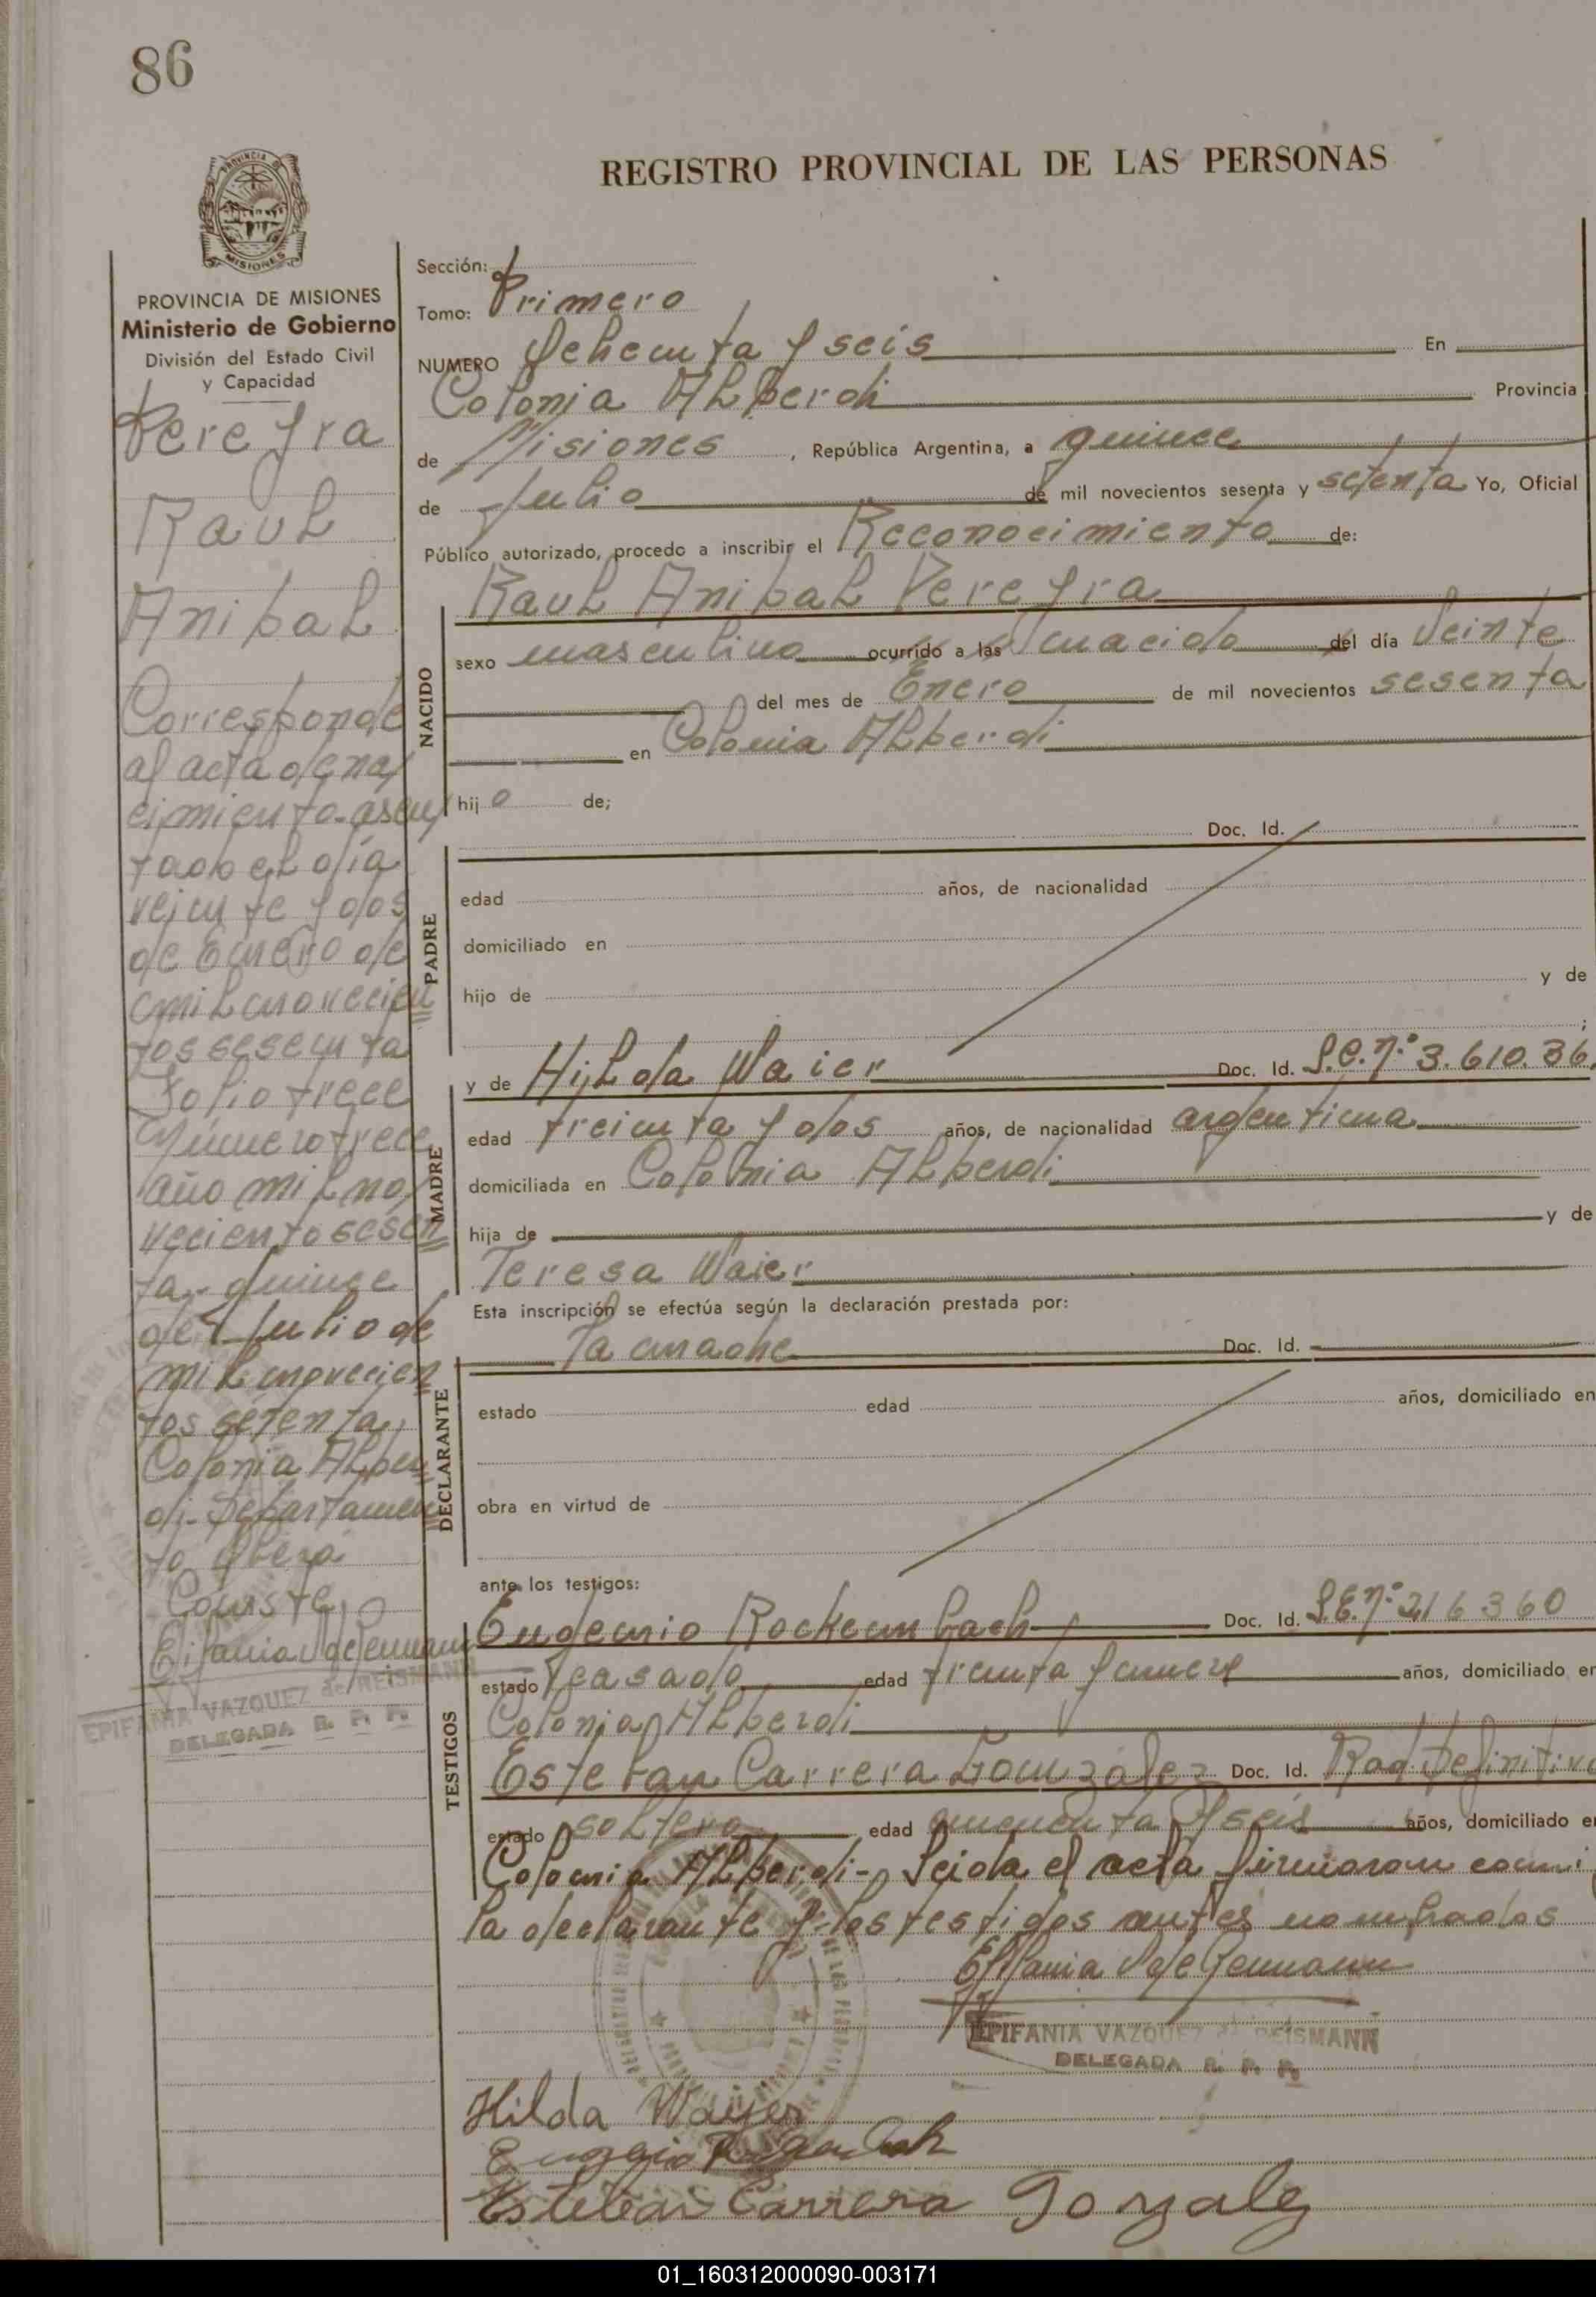 86
PROVINCIA DE MISIONES
Ministerio de Gobierno
División del Estado Civil
y Capacidad
Pereyra
Raul
Anibal
Corresponde
al acta de na
cimiento-asen
tado el día
veinte y dos
de Enero de
mil novecien
tos sesenta
Folio trece
Número trece
año mil no
veciento sesen
ta- quince
de Julio de
mil novecien
tos setenta,
Colonia Alber
di-Departamen
to Oberá
Conste
EPIFANIA VAZQUEZ de REISMANN
DELEGADA R. P. P.
REGISTRO PROVINCIAL DE LAS PERSONAS
Sección:
Tomo: Primero
NUMERO Ochenta y seis En
Colonia Alberdi Provincia
de Misiones, República Argentina, a quince
de Julio de mil novecientos sesenta y setenta Yo, Oficial
Público autorizado, procedo a inscribir el Reconocimiento de:
Raul Anibal Pereyra
NACIDO
sexo masculino ocurrido a las nacido del día Veinte
del mes de Enero de mil novecientos sesenta
en Colonia Alberdi
hijo de;
PADRE
Doc. Id.
edad años, de nacionalidad
domiciliado en
hijo de y de
;
MADRE
y de Hilda Waier Doc. Id. L.C.n:° 3.610.36
edad treinta y dos años, de nacionalidad argentina
domiciliada en Colonia Alberdi
hija de y de
Teresa Waier
Esta inscripción se efectúa según la declaración prestada por:
DECLARANTE
La madre Doc. Id.
estado edad años, domiciliado en
obra en virtud de
ante los testigos:
TESTIGOS
Eugenio Rockenbach Doc. Id. L.E.n:° 216360
estado casado edad treinta y nueve años, domiciliado en
Colonia Alberdi
Esteban Carrera González Doc. Id. Rad. Definitiva
estado soltero edad cincuenta y seis años, domiciliado en
Colonia Alberdi- Leida el acta firmaron
la declarante y los testigos antes nombrados
EPIFANIA VAZQUEZ de REISMANN
DELEGADA R. P. P.
Hilda Waiyer
Esteban Carrera Gonzalez
01_160312000090-003171